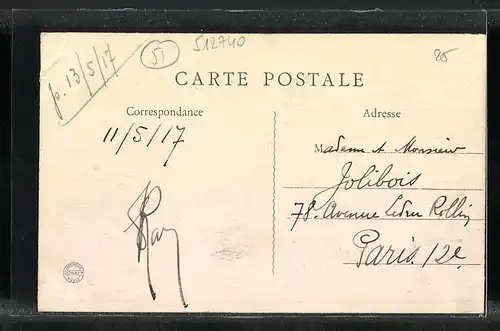 p. 13/5/17
51
512740
25
CARTE POSTALE
Correspondance
Adresse
11/5/17
Madame et Monsieur
Jolibois
78. Avenue Ledru Rollin
Paris. 12e.